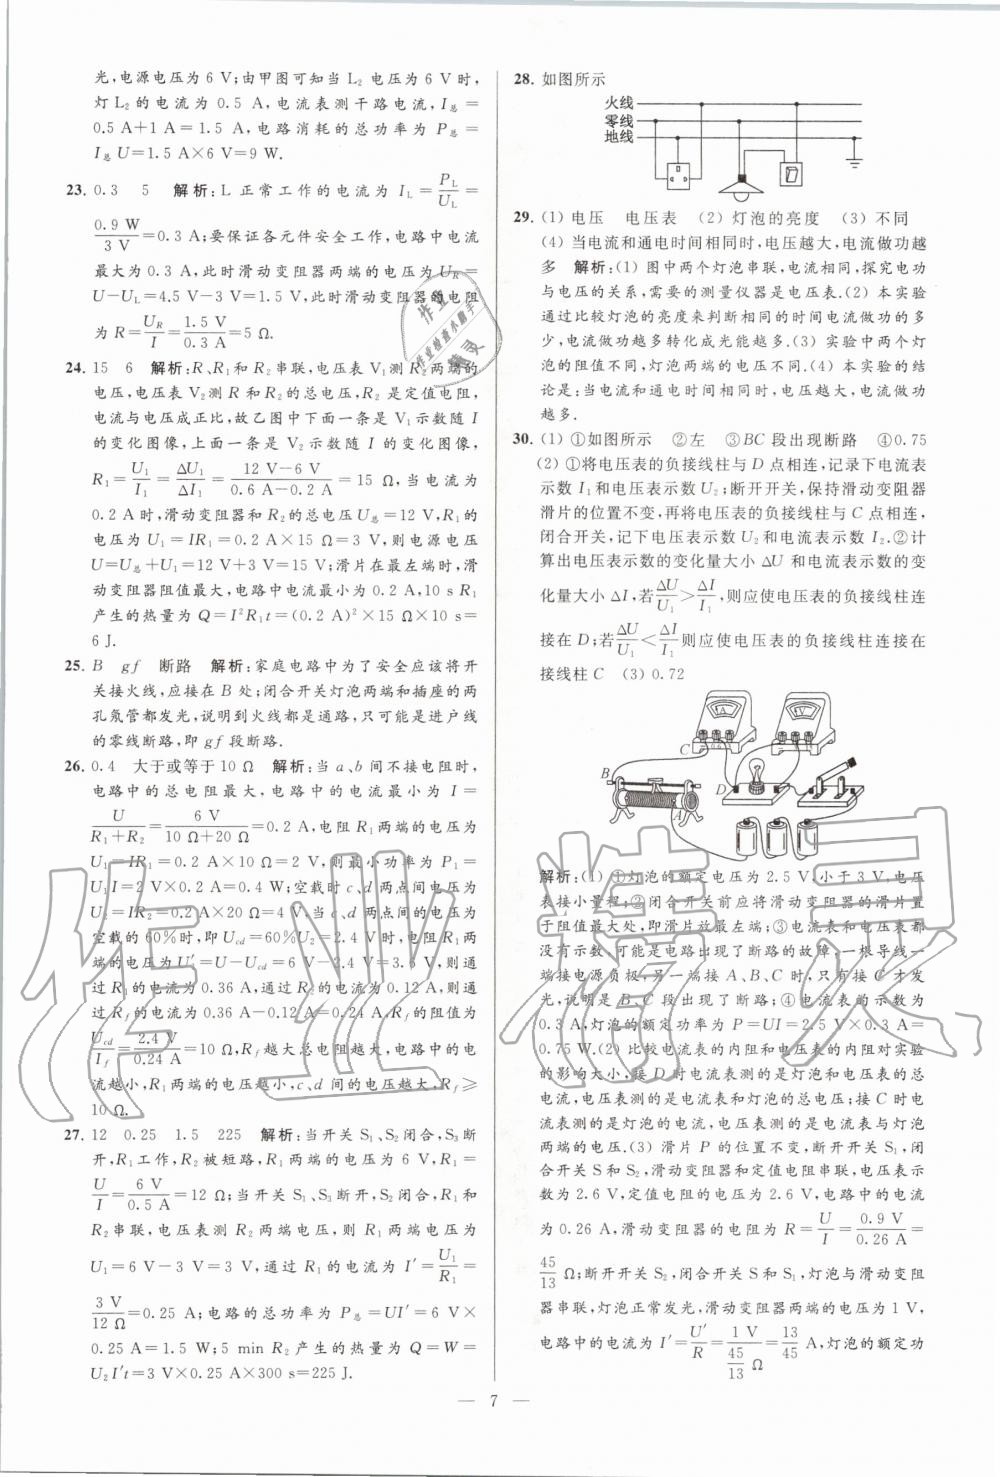 光,电源电压为 6 V;由甲图可知当 L₂ 电压为 6 V 时,
灯 L₂ 的电流为 0.5 A,电流表测干路电流,I总=
0.5 A+1 A=1.5 A,电路消耗的总功率为 P总=
I总U=1.5 A×6 V=9 W.
23. 0.3 5 解析:L 正常工作的电流为 I_L=P_L/U_L=
0.9 W/3 V=0.3 A;要保证各元件安全工作,电路中电流
最大为 0.3 A,此时滑动变阻器两端的电压为 U_R=
U-U_L=4.5 V-3 V=1.5 V,此时滑动变阻器的电阻
为 R=U_R/I=1.5 V/0.3 A=5 Ω.
24. 15 6 解析:R、R₁和 R₂串联,电压表 V₁测 R₂两端的
电压,电压表 V₂测 R 和 R₂的总电压,R₂是定值电阻,
电流与电压成正比,故乙图中下面一条是 V₁示数随 I
的变化图像,上面一条是 V₂示数随 I 的变化图像,
R₁=U₁/I₁=ΔU₁/ΔI₁=(12 V-6 V)/(0.6 A-0.2 A)=15 Ω,当电流为
0.2 A 时,滑动变阻器和 R₂的总电压U总=12 V,R₁的
电压为 U₁=IR₁=0.2 A×15 Ω=3 V,则电源电压
U=U总+U₁=12 V+3 V=15 V;滑片在最左端时,滑
动变阻器阻值最大,电路中电流最小为 0.2 A,10 s R₁
产生的热量为 Q=I²R₁t=(0.2 A)²×15 Ω×10 s=
6 J.
25. B gf 断路 解析:家庭电路中为了安全应该将开
关接火线,应接在 B 处;闭合开关灯泡两端和插座的两
孔氖管都发光,说明到火线都是通路,只可能是进户线
的零线断路,即 gf 段断路.
26. 0.4 大于或等于 10 Ω 解析:当 a、b 间不接电阻时,
电路中的总电阻最大,电路中的电流最小为 I=
U/(R₁+R₂)=6 V/(10 Ω+20 Ω)=0.2 A,电阻 R₁两端的电压为
U₁=IR₁=0.2 A×10 Ω=2 V,则最小功率为 P₁=
U₁I=2 V×0.2 A=0.4 W;空载时 c、d 两点间电压为
U₂=IR₂=0.2 A×20 Ω=4 V,当 c、d 两点间的电压为
空载的 60%时,即 U_cd=60%U₂=2.4 V 时,电阻 R₁两
端的电压为 U₁′=U-U_cd=6 V-2.4 V=3.6 V,则通
过 R₁的电流为 0.36 A,通过 R₂的电流为 0.12 A,则通
过 R_f的电流为 0.36 A-0.12 A=0.24 A,R_f的阻值为
U_cd/I_f=2.4 V/0.24 A=10 Ω,R_f越大总电阻越大,电路中的电
流越小,R₁两端的电压越小,c、d 间的电压越大,R_f≥
10 Ω.
27. 12 0.25 1.5 225 解析:当开关 S₁、S₂闭合,S₃断
开,R₁工作,R₂被短路,R₁两端的电压为 6 V,R₁=
U/I=6 V/0.5 A=12 Ω;当开关 S₁、S₃断开,S₂闭合,R₁和
R₂串联,电压表测 R₂两端电压,则 R₁两端电压为
U₁=6 V-3 V=3 V,通过 R₁的电流为 I′=U₁/R₁=
3 V/12 Ω=0.25 A;电路的总功率为 P总=UI′=6 V×
0.25 A=1.5 W;5 min R₂产生的热量为 Q=W=
U₂I′t=3 V×0.25 A×300 s=225 J.
28. 如图所示
火线
零线
地线
29. (1) 电压 电压表 (2) 灯泡的亮度 (3) 不同
(4) 当电流和通电时间相同时,电压越大,电流做功越
多 解析:(1) 图中两个灯泡串联,电流相同,探究电功
与电压的关系,需要的测量仪器是电压表.(2) 本实验
通过比较灯泡的亮度来判断相同的时间电流做功的多
少,电流做功越多转化成光能越多.(3) 实验中两个灯
泡的阻值不同,则灯泡两端的电压不同.(4) 本实验的结
论是:当电流和通电时间相同时,电压越大,电流做功
越多.
30. (1) ①如图所示 ②左 ③BC 段出现断路 ④0.75
(2) ①将电压表的负接线柱与 D 点相连,记录下电流表
示数 I₁和电压表示数 U₂;断开开关,保持滑动变阻器
滑片的位置不变,再将电压表的负接线柱与 C 点相连,
闭合开关,记下电压表示数 U₂和电流表示数 I₂.②计
算出电压表示数的变化量大小 ΔU 和电流表示数的变
化量大小 ΔI,若ΔU/U₁>ΔI/I₁,则应使电压表的负接线柱连
接在 D;若ΔU/U₁<ΔI/I₁则应使电压表的负接线柱连接在
接线柱 C (3) 0.72
A V
C
B D
A
解析:(1) ①灯泡的额定电压为 2.5 V,小于 3 V,电压
表接小量程;②闭合开关前应将滑动变阻器的滑片置
于阻值最大处,即滑片最左端;③电流表和电压表都
没有示数,可能是电路出现了断路的故障,一根导线一
端接电源负极,另一端接 A、B、C 时,只有接 C 才发
光,说明是 B、C 段出现了断路;④电流表的示数为
0.3 A,灯泡的额定功率为 P=UI=2.5 V×0.3 A=
0.75 W.(2) 比较电流表的内阻和电压表的内阻对实验
的影响大小,接 D 时电流表测的是灯泡和电压表的总
电流,电压表测的是电流表和灯泡的总电压;接 C 时电
流表测的是灯泡的电流,电压表测的是电流表与灯泡
两端的电压.(3) 滑片 P 的位置不变,断开开关 S₁,闭
合开关 S 和 S₂,滑动变阻器和定值电阻串联,电压表示
数为 2.6 V,定值电阻的电压为 2.6 V,电路中的电流
为 0.26 A,滑动变阻器的电阻为 R=U/I=0.9 V/0.26 A=
45/13 Ω;断开开关 S₂,闭合开关 S 和 S₁,灯泡与滑动变阻
器串联,灯泡正常发光,滑动变阻器的电压为 1 V,
电路中的电流为 I′=U′/R=1 V/(45/13 Ω)=13/45 A,灯泡的额定功
— 7 —
作业
作业检查小助手
精灵
作业精灵